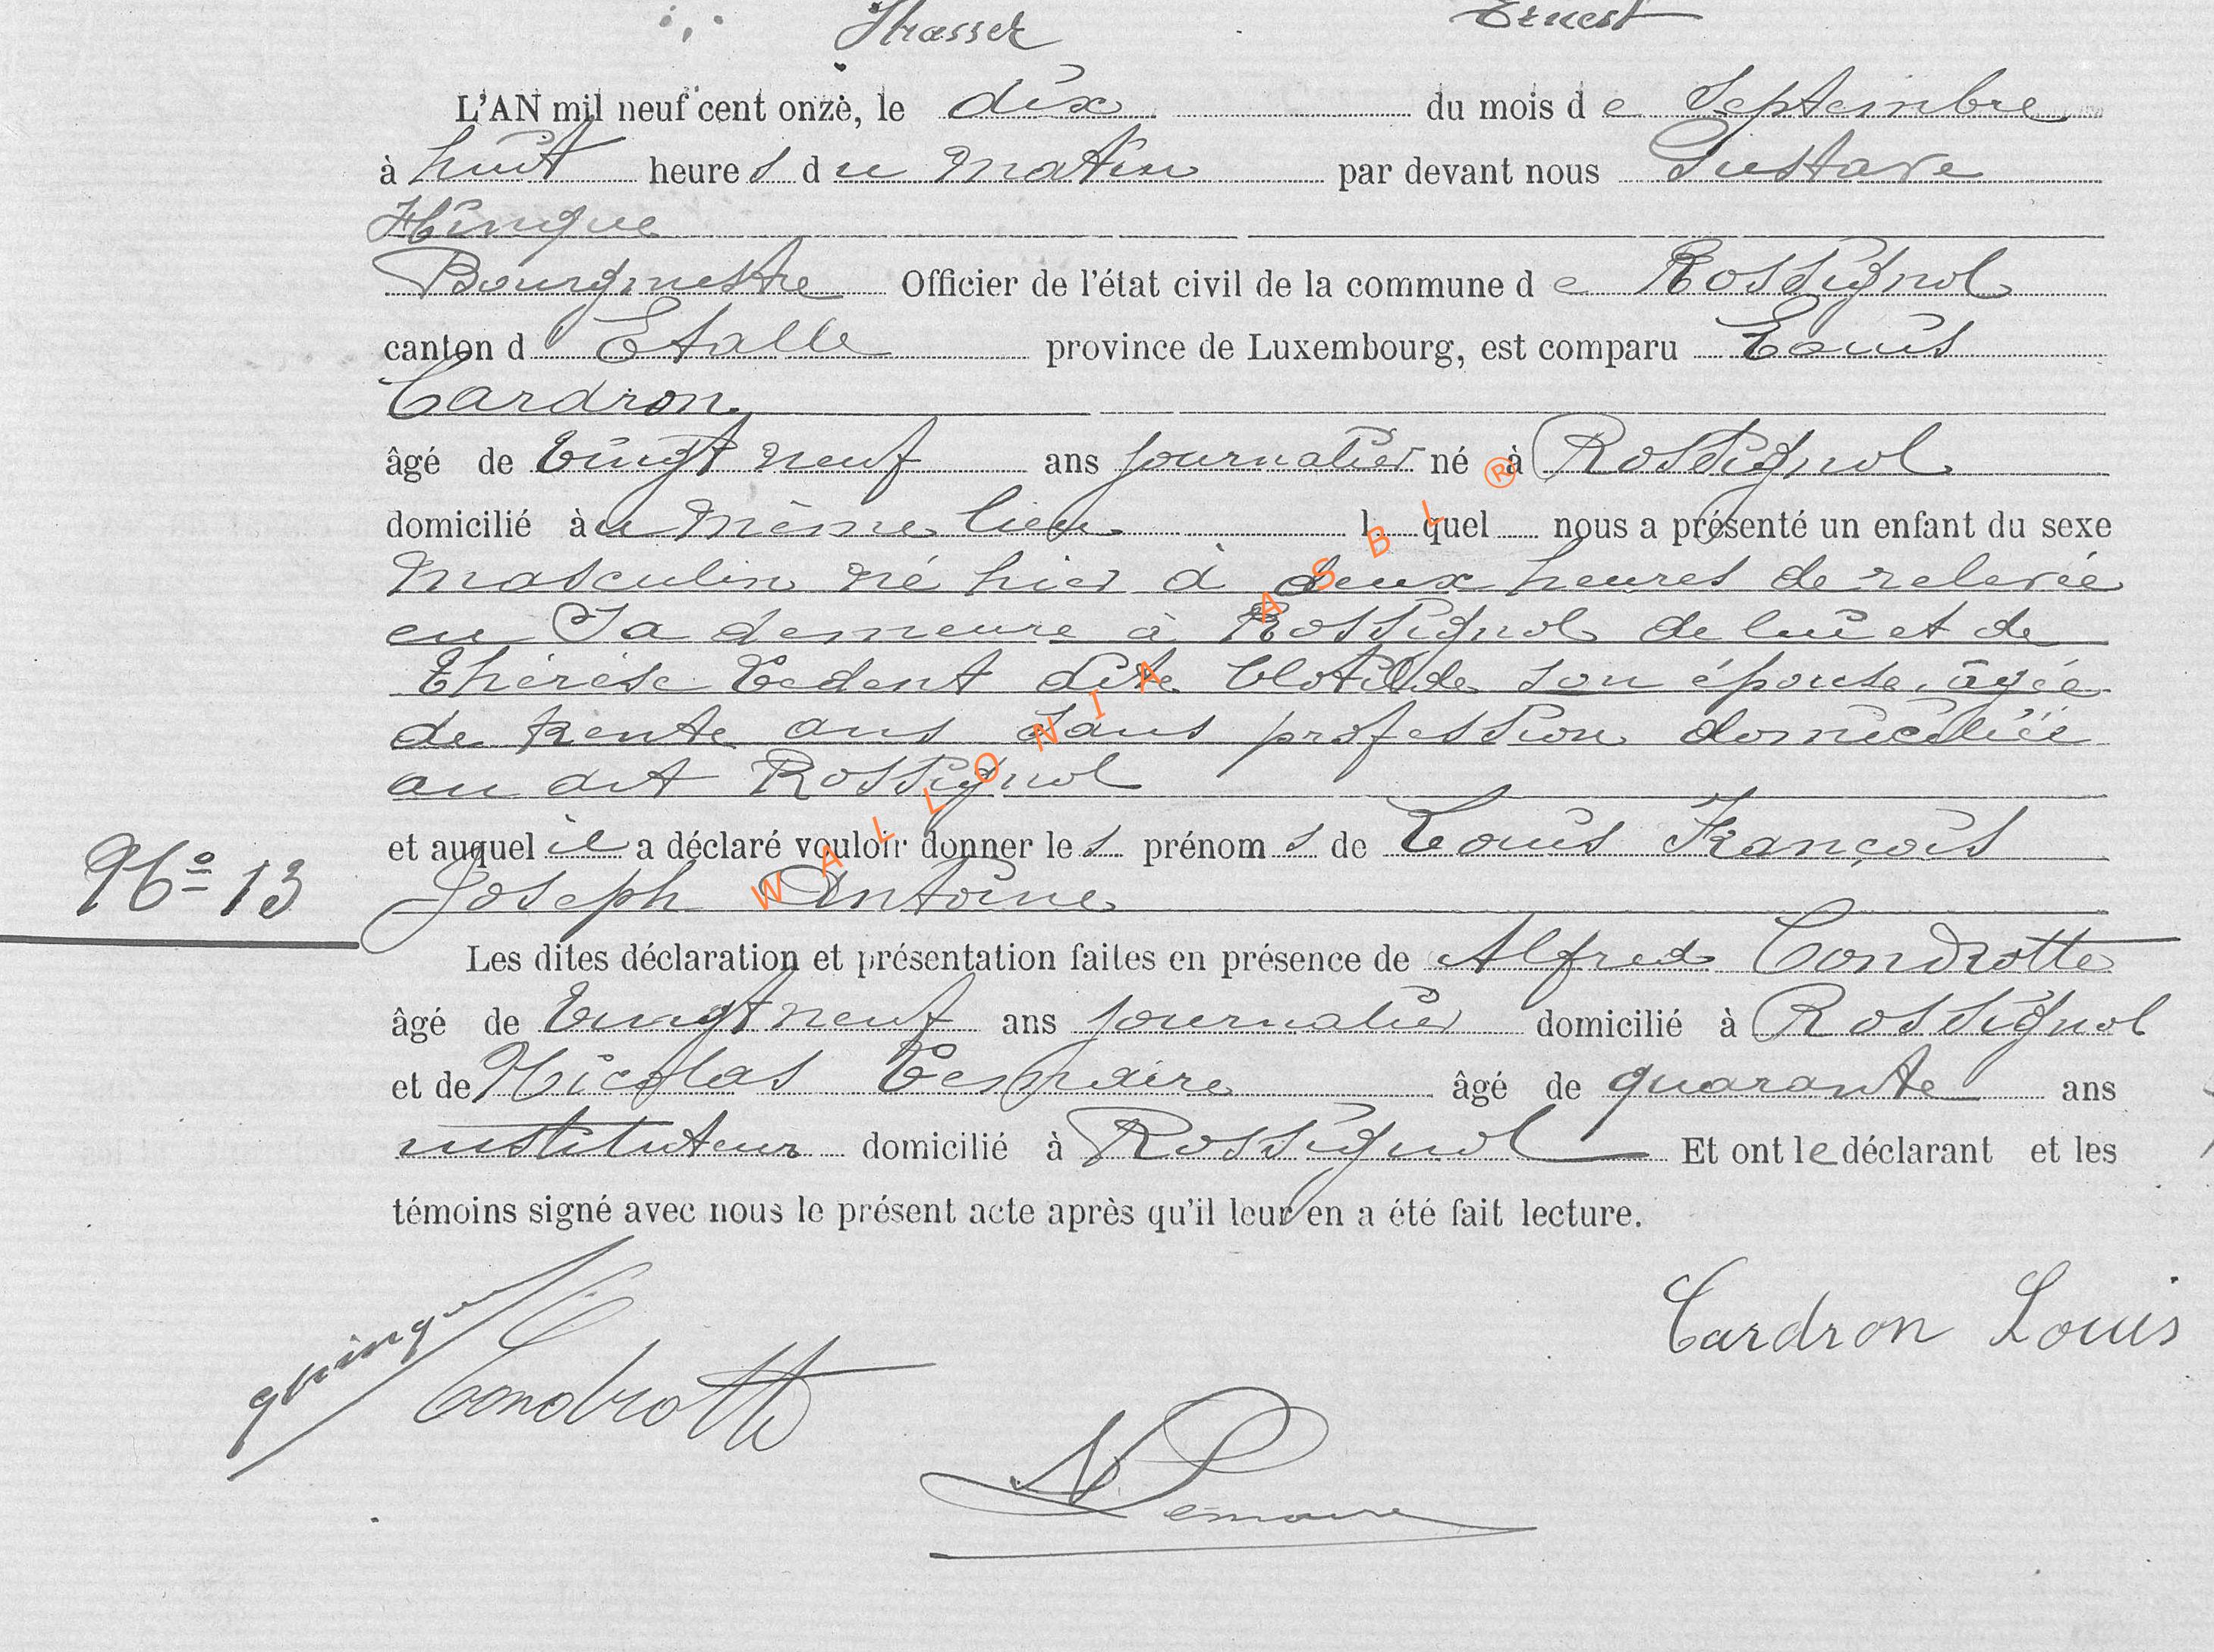 Strasser Ernest
L'AN mil neuf cent onze, le dix du mois de Septembre
à huit heures du matin par devant nous Gustave
Hinque
Bourgmestre Officier de l'état civil de la commune de Rossignol
canton d'Etalle province de Luxembourg, est comparu Louis
Cardron
âgé de vingt neuf ans journalier né à Rossignol
domicilié au même lieu l quel nous a présenté un enfant du sexe
masculin né hier à deux heures de relevée
en sa demeure à Rossignol de lui et de
Thérèse Dedent dite Clotilde son épouse, âgée
de trente ans sans profession domiciliée
au dit Rossignol
et auquel il a déclaré vouloir donner les prénoms de Louis François
N° 13 Joseph Antoine
Les dites déclaration et présentation faites en présence de Alfred Condrotte
âgé de vingt neuf ans journalier domicilié à Rossignol
et de Nicolas Lemaire âgé de quarante ans
instituteur domicilié à Rossignol Et ont le déclarant et les
témoins signé avec nous le présent acte après qu'il leur en a été fait lecture.
Cardron Louis
ghinque
Condrotte
N Lemaire
WALLONIA ASBL ®